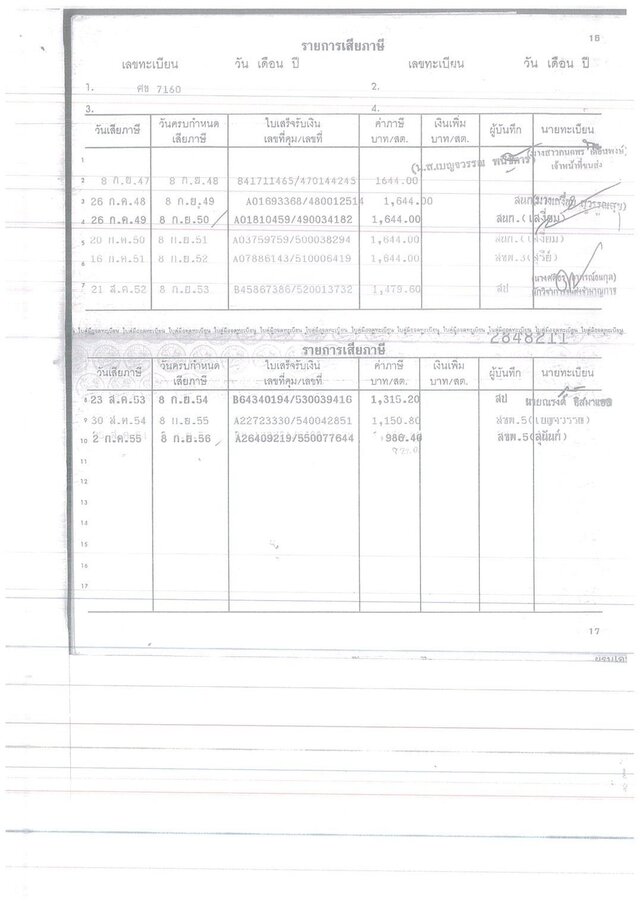 รายการเสียภาษี
16
เลขทะเบียน วัน เดือน ปี เลขทะเบียน วัน เดือน ปี
1. ศช 7160 2.
3. 4.
วันเสียภาษี วันครบกำหนดเสียภาษี ใบเสร็จรับเงินเลขที่คุม/เลขที่ ค่าภาษีบาท/สต. เงินเพิ่มบาท/สต. ผู้บันทึก นายทะเบียน
1
(น.ส.เบญจวรรณ เจ้าหน้าที่ขนส่ง
2 8 ก.ย.47 8 ก.ย.48 B41711465/470144245 1644.00
3 26 ก.ค.48 8 ก.ย.49 A01693368/480012514 1,644.00 สผก
4 26 ก.ค.49 8 ก.ย.50 A01810459/490034182 1,644.00 สผก.(เสงี่ยม)
5 20 ก.ค.50 8 ก.ย.51 A03759759/500038294 1,644.00 สผก.(เสงี่ยม)
6 16 ก.ค.51 8 ก.ย.52 A07886143/510006419 1,644.00
7 21 ส.ค.52 8 ก.ย.53 B45867386/520013732 1,479.60 สป
2848211
รายการเสียภาษี
วันเสียภาษี วันครบกำหนดเสียภาษี ใบเสร็จรับเงินเลขที่คุม/เลขที่ ค่าภาษีบาท/สต. เงินเพิ่มบาท/สต. ผู้บันทึก นายทะเบียน
8 23 ส.ค.53 8 ก.ย.54 B64340194/530039416 1,315.20 สป นายณรงค์
9 30 ส.ค.54 8 ก.ย.55 A22723330/540042851 1,150.80 สขพ.5(เบญจวรรณ)
10 2 ก.ค.55 8 ก.ย.56 A26409219/550077644 986.40 สขพ.5(สุนันท์)
11
12
13
14
15
16
17
17